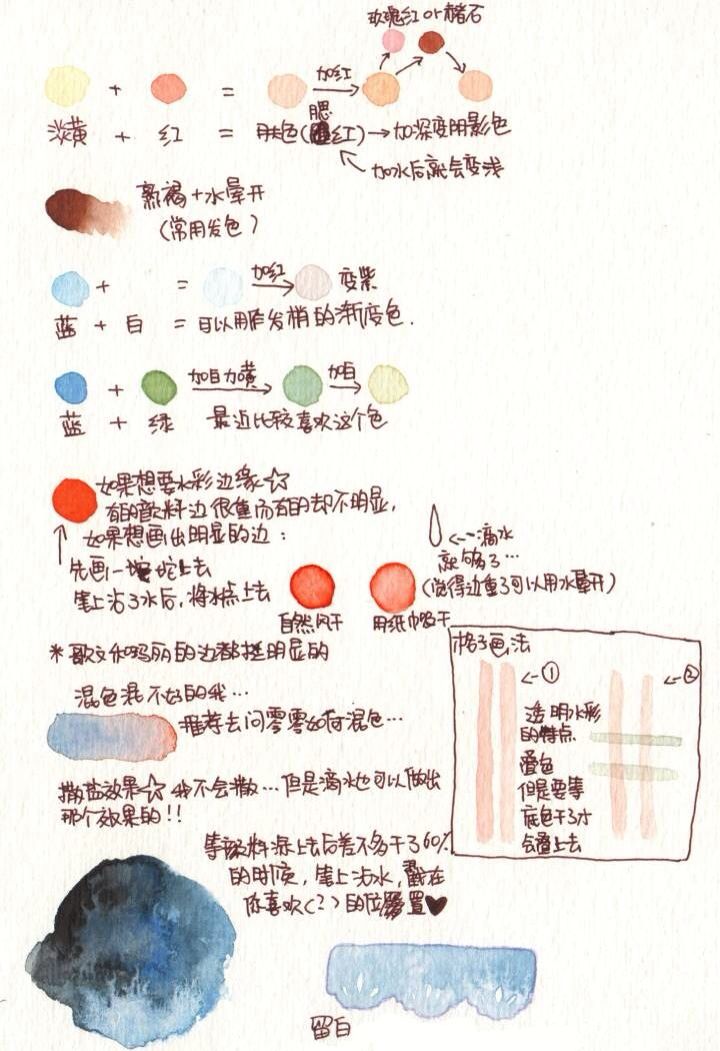 玫瑰红or赭石
+ = 加红
淡黄 + 红 = 肤色(腮红)→加深变阴影色
加水后就会变浅
熟褐+水晕开
(常用发色)
+ = 加红 变紫
蓝 + 白 = 可以用作发梢的渐变色.
+ 加白加黄 加白
蓝 + 绿 最近比较喜欢这个色
如果想要水彩边缘☆
有的颜料边很重而有的却不明显,
如果想画出明显的边:
先画一坨上去
笔上沾了水后,将水点上去
←--滴水
就够了…
(觉得边重了可以用水晕开)
自然风干 用纸巾吸干
*歌文和玛丽的边都挺明显的
混色混不好的我…
推荐去问零零如何混色…
撒盐效果☆我不会撒…但是滴水也可以做出
那个效果的!!
等颜料涂上去后差不多干了60%
的时候,笔上沾水,戳在
你喜欢(?)的位置♥
格子画法
←-① ←-②
透明水彩
的特点
叠色
但是要等
底色干了才
会叠上去
留白